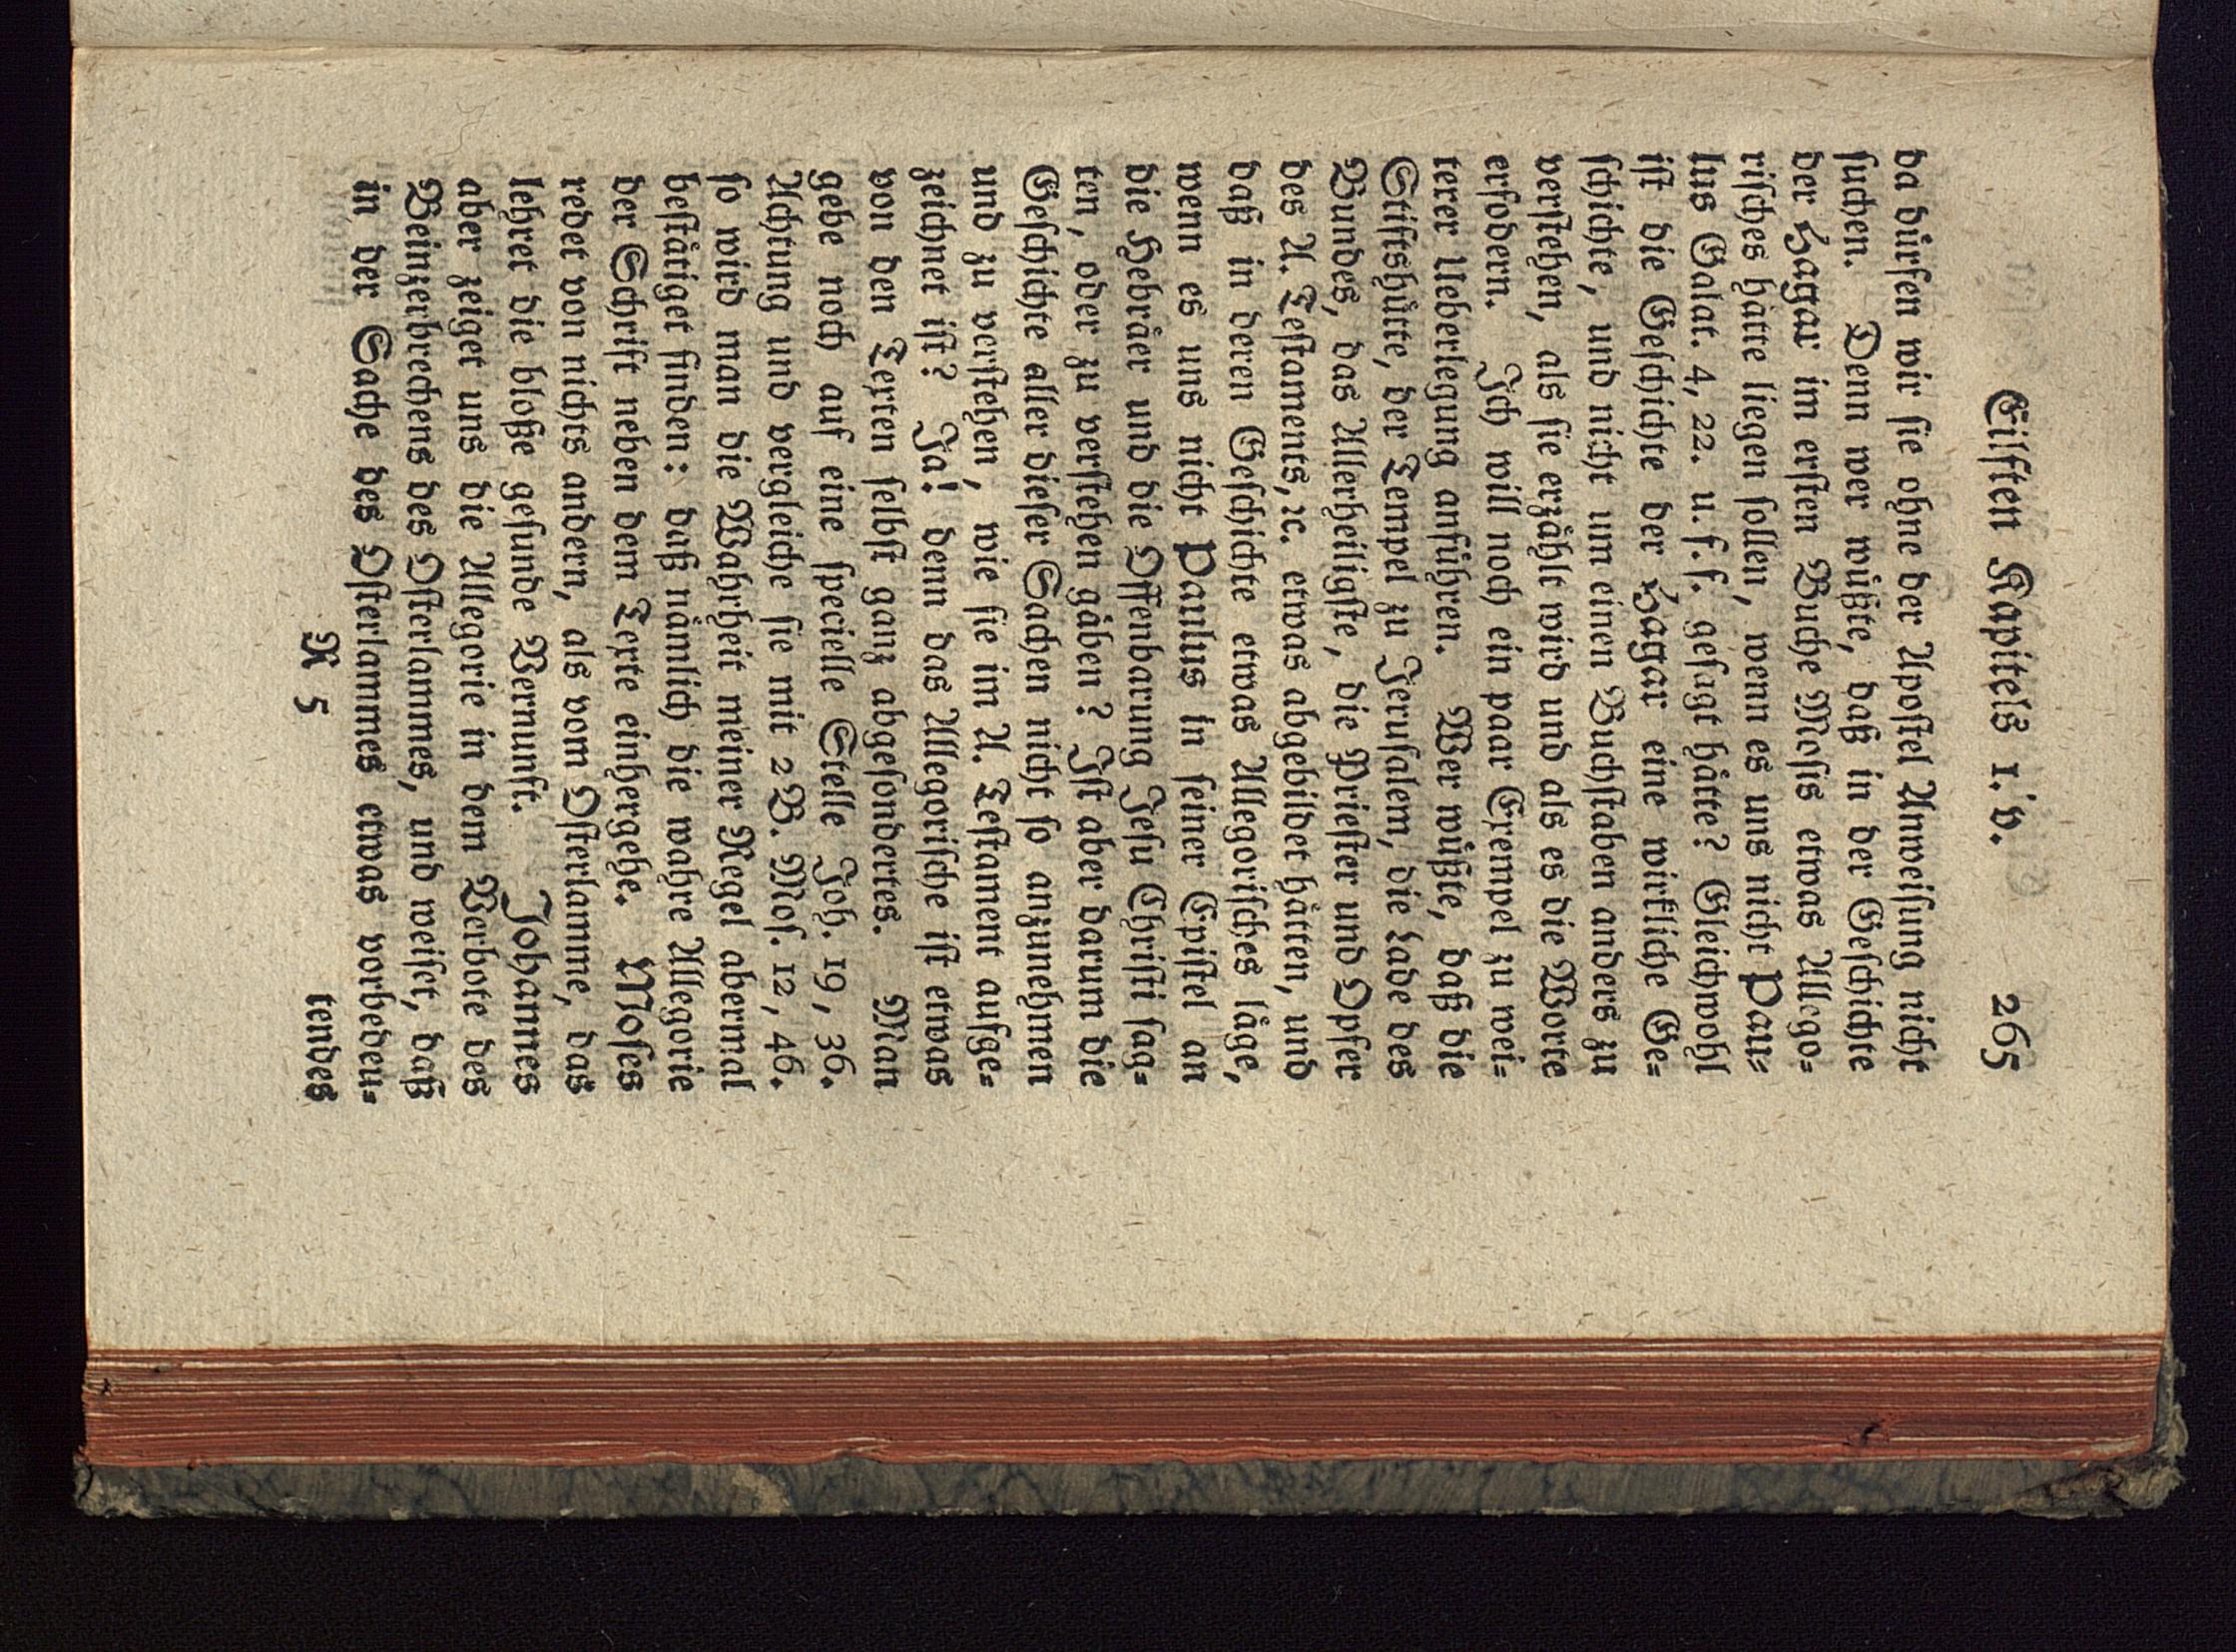 Eilften Kapitels 1. v. 265
da dürfen wir ſie ohne der Apoſtel Anweiſung nicht
ſuchen. Denn wer wüßte, daß in der Geſchichte
der Hagar im erſten Buche Moſis etwas Allego-
riſches hätte liegen ſollen, wenn es uns nicht Pau-
lus Galat. 4, 22. u. f. f. geſagt hätte? Gleichwohl
iſt die Geſchichte der Hagar eine wirkliche Ge-
ſchichte, und nicht um einen Buchſtaben anders zu
verſtehen, als ſie erzählt wird und als es die Worte
erfodern. Ich will noch ein paar Exempel zu wei-
terer Ueberlegung anführen. Wer wüßte, daß die
Stiftshütte, der Tempel zu Jeruſalem, die Lade des
Bundes, das Allerheiligſte, die Prieſter und Opfer
des A. Teſtaments, ꝛc. etwas abgebildet hätten, und
daß in deren Geſchichte etwas Allegoriſches läge,
wenn es uns nicht Paulus in ſeiner Epiſtel an
die Hebräer und die Offenbarung Jeſu Chriſti ſag-
ten, oder zu verſtehen gäben? Iſt aber darum die
Geſchichte aller dieſer Sachen nicht ſo anzunehmen
und zu verſtehen, wie ſie im A. Teſtament aufge-
zeichnet iſt? Ja! denn das Allegoriſche iſt etwas
von den Texten ſelbſt ganz abgeſondertes. Man
gebe noch auf eine ſpecielle Stelle Joh. 19, 36.
Achtung und vergleiche ſie mit 2 B. Moſ. 12, 46.
ſo wird man die Wahrheit meiner Regel abermal
beſtätiget finden: daß nämlich die wahre Allegorie
der Schrift neben dem Texte einhergehe. Moſes
redet von nichts andern, als vom Oſterlamme, das
lehret die bloße geſunde Vernunft. Johannes
aber zeiget uns die Allegorie in dem Verbote des
Beinzerbrechens des Oſterlammes, und weiſet, daß
in der Sache des Oſterlammes etwas vorbedeu-
R 5 tendes